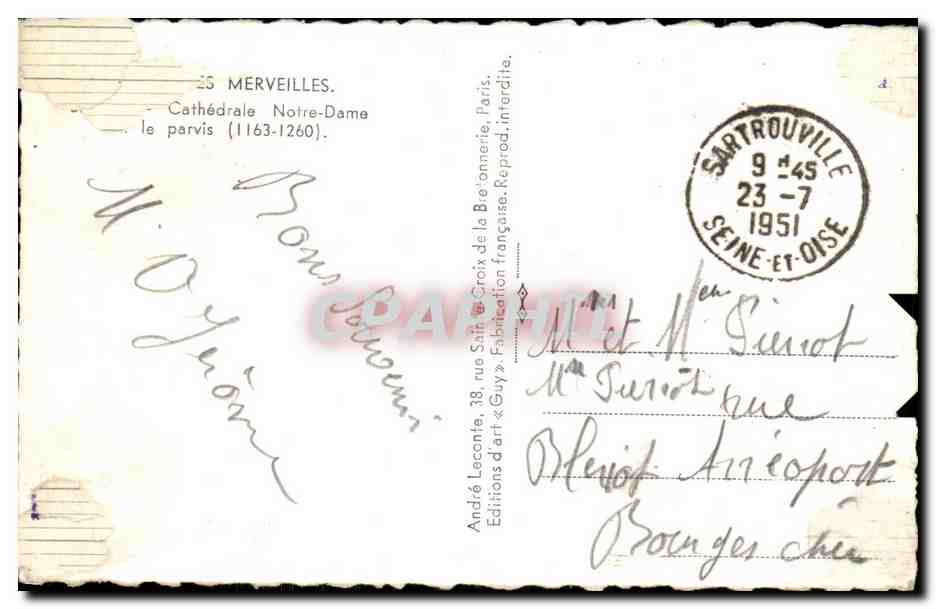 ES MERVEILLES.
Cathédrale Notre-Dame
le parvis (1163-1260).
Bons Souvenir
M. O Jérôme
André Leconte, 38, rue Sainte-Croix de la Bretonnerie, Paris.
Editions d'art « Guy ». Fabrication française. Reprod. interdite.
SARTROUVILLE
9 H 45
23 - 7
1951
SEINE-ET-OISE
et Pierrot
rue
Bleriot Arréoport
Bourges cher
CPAPHIL